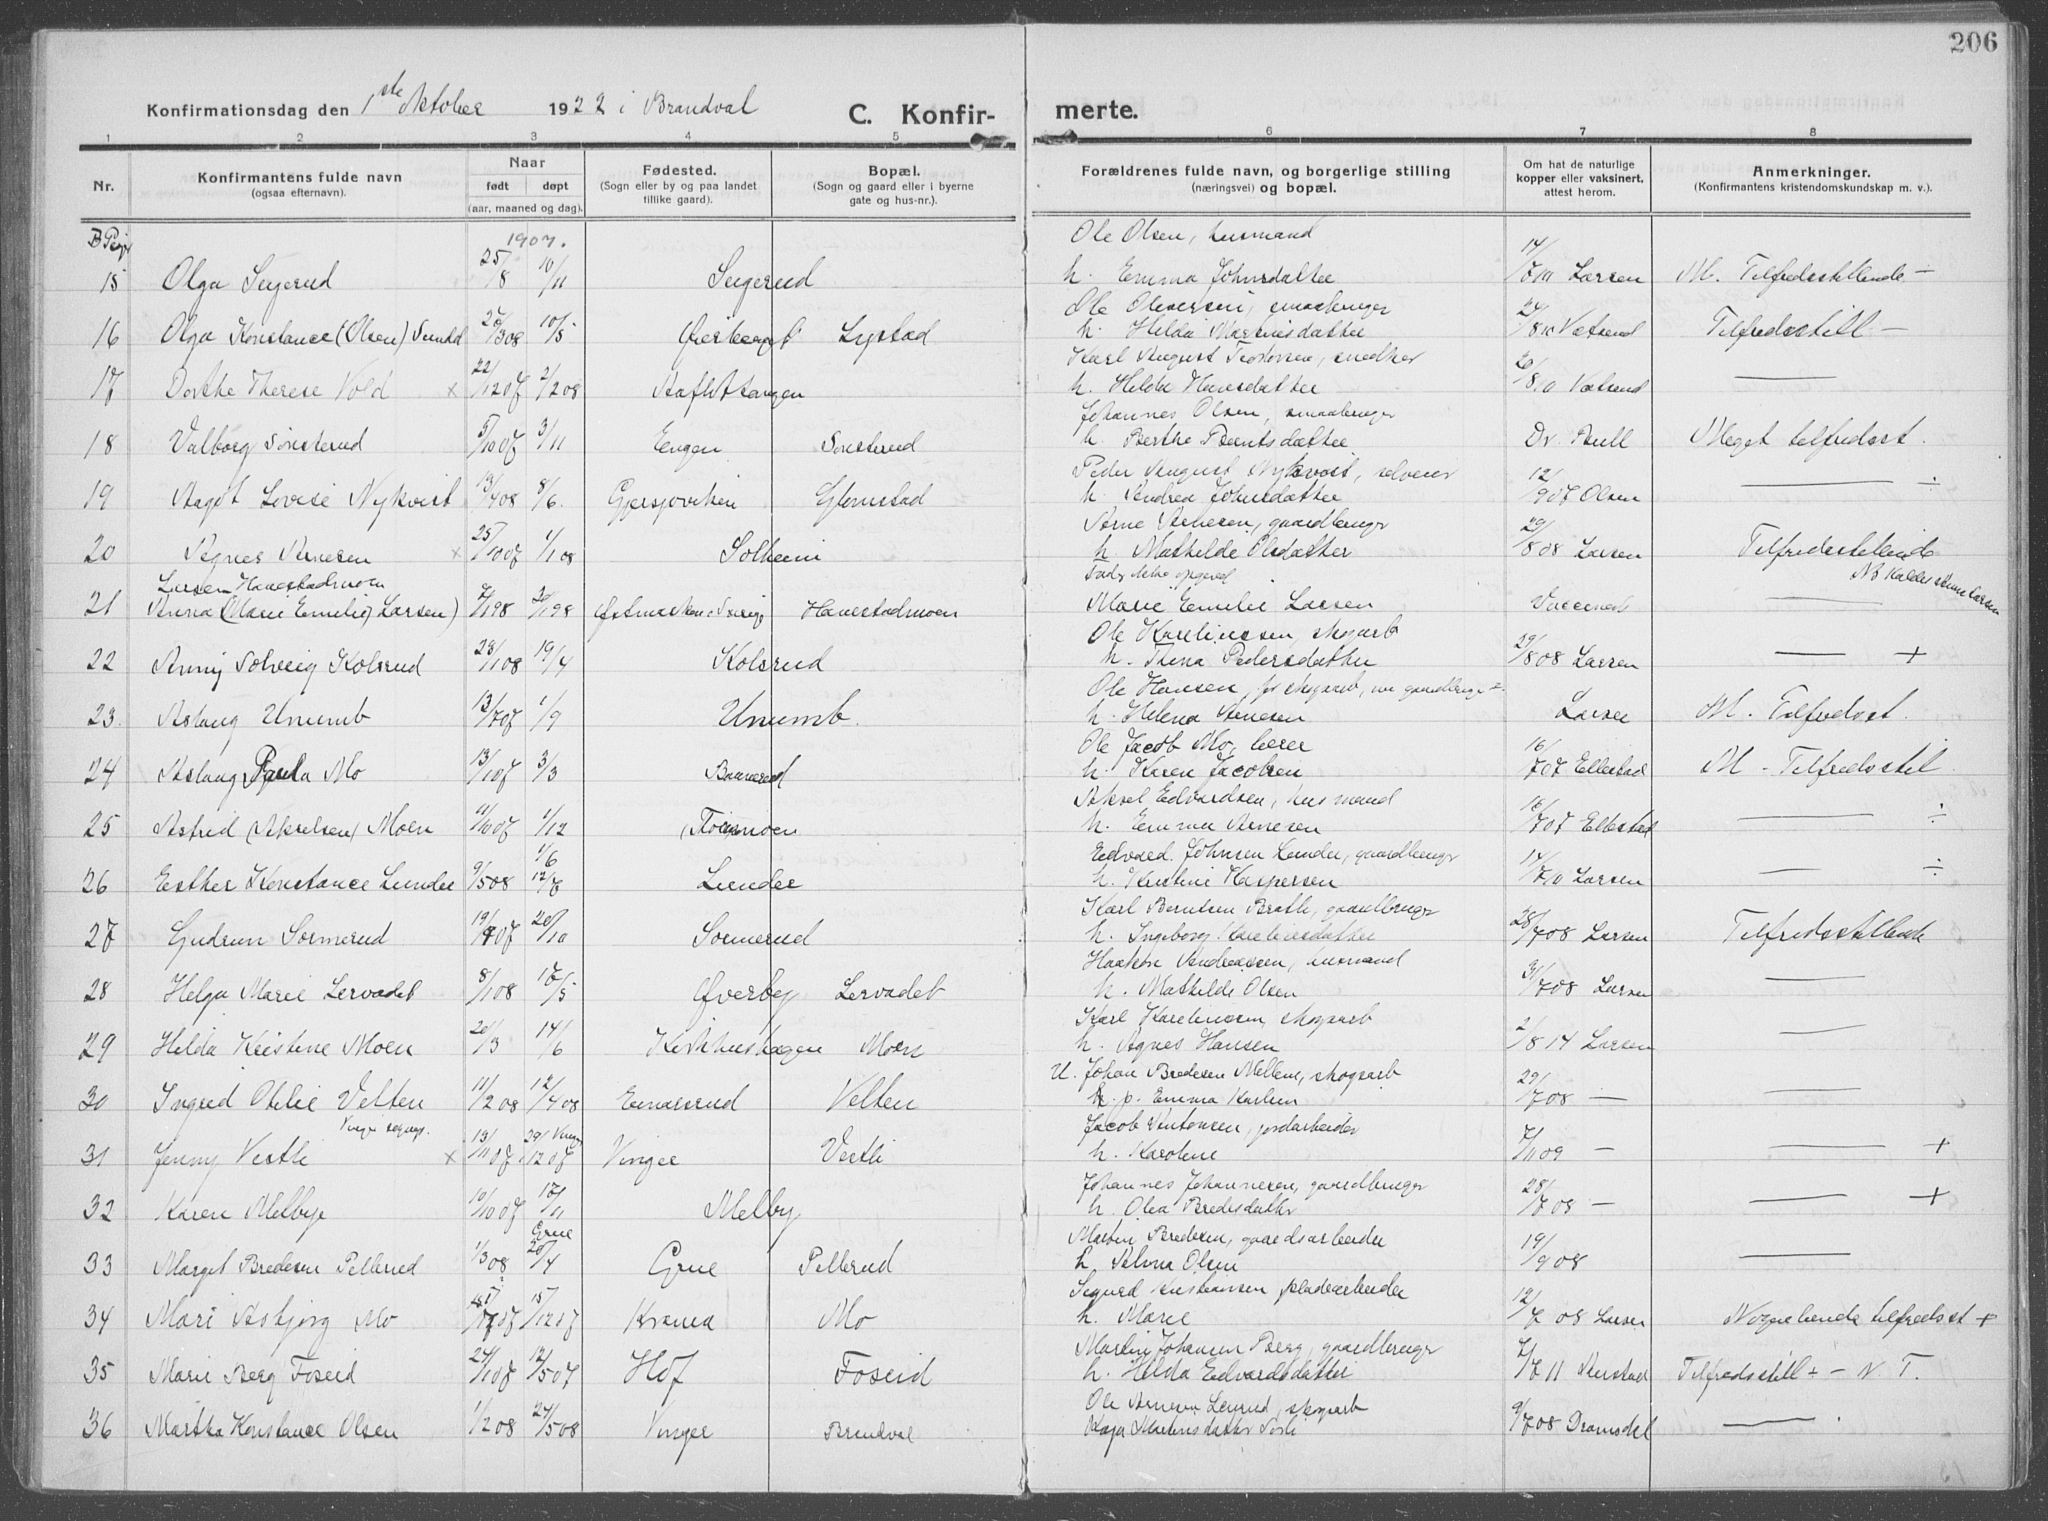 206
Konfirmationsdag den 1ste Oktober 1922 i Brandval
C. Konfir-
merte.
1 2 3 4 5 6 7 8
Nr.
Konfirmantens fulde navn
(ogsaa efternavn).
Naar
født døpt
(aar, maaned og dag).
Fødested.
(Sogn eller by og paa landet
tillike gaard).
Bopæl.
(Sogn og gaard eller i byerne
gate og hus-nr.).
Forældrenes fulde navn, og borgerlige stilling
(næringsvei) og bopæl.
Om hat de naturlige
kopper eller vaksinert,
attest herom.
Anmerkninger.
(Konfirmantens kristendomskundskap m. v.).
1907. Ole Olsen, husmand
15 Olga Seigerud 25/8 10/11 Seigerud h. Emma Johnsdatter 14/7 10 Larsen M. Tilfredsstillende –
Ole Oliversen, smaabruger
16 Olga Konstance (Olsen) 10/5 Lystad h. Hilda 24/8 10 Vatsend Tilfredsstill –
Karl August, snedker
17 Dorthe Therese Vold × 22/12 07 2/2 08 h. Hilda Hansdatter 26/8 10 Vatsend —
Johannes Olsen, smaabruger
18 Valborg Sønsterud 5/10 07 3/11 Engen Sønsterud h. Berthe Berntsdatter Dr. Bull Meget tilfredsst.
Peder August Nykvist, selveier
19 Aagot Lovise Nykvist 13/4 08 8/6. Gjersjøviken Glomstad h. Andrea Johnsdatter 12/9 07 Olsen — ÷
Arne Arnesen, gaardbruger
20 Agnes Arnesen × 25/10 07 1/1 08 Solheim h. Mathilde Olsdatter 29/8 08 Larsen Tilfredsstillende
Larsen Havestadmoen
Fader ikke opgived
NB Kaldes Anna Larsen
21 Anna (Marie Emilie) Larsen) Havestadmoen Marie Emilie Larsen —
Ole Karelinssen, skogarb
22 Anny Solveig Kolsrud 23/1 08 19/4 Kolsrud h. Tina Pedersdatter 29/8 08 Larsen — +
Ole Hansen, før skogarb, nu gaardbruger
23. Aslaug Unumb 13/7 07 1/9 Unumb. h. Helena Arnesen Larsen M. Tilfredsst.
Ole Jacob Mo, lærer
24 Aslaug Paula Mo 13/1 07 3/3 h. Karen Jacobsen 16/7 07 Ellestad M - Tilfredsstil.
Aksel Edvardsen, husmand
25 Astrid (Akselsen) Moen 11/10 07 1/12 h. Emma Arnesen 16/7 07 Ellestad — ÷
1/6 Edvard Johnsen Lunder, gaardbruger
26 Esther Konstance Lunder 9/5 08 12/7 Lunder h. Kristine Kaspersen 14/7 10 Larsen — ÷
Karl Berntsen Brath, gaardbruger
27 Gudrun Sormerud 20/10 Sormerud h. Ingeborg Karelinsdatter 28/7 08 Larsen Tilfredsstillende
Haakon Andreassen, husmand
28 Helga Marie Lervadet 8/1 08 17/5 Øverby Lervadet h. Mathilde Olsen 31/7 08 Larsen —
Karl Karelinssen, skogarb
29 Hilda Kristine Moen 20/3 14/6 Kirkhushagen Moen h. Agnes Hansen 2/8 14 Larsen —
U. Johan Bredesen Mellem, skogarb
30 Ingrid Otilie Velten 11/2 08 12/4 08 Einarsrud Velten p. Emma Karlsen 29/7 08 — —
Jacob Antonsen, jordarbeider
31 Jenny Vestli × 13/11 07 29/12 07 Vinger Vestli h. Karoline 7/11 09 — — +
Johannes Johannesen, gaardbruger
32 Karen Melbye 10/10 07 17/11 Melby h. Olea Bredesdatter 28/7 08 — — +
Grue Martin Bredesen, gaardsarbeider
33 Margit Bredesen Pellerud 1/3 08 20/4 Grue Pellerud h. Alma Olsen 19/9 08 —
Sigurd Kristiansen, pladsarbeider
34 Mari Asbjørg Mo 15/12 17 Mo h. Marie 12/7 08 Larsen Nogenlunde tilfredsst +
Martin Johansen Berg, gaardbruger
35 Marie Berg Foseid 24/1 07 12/5 07 Hof Foseid h. Hilda Edvardsdatter 7/7 11 Tilfredsstill ÷ – N. T.
Ole Arnesen, skogarb
36 Martha Konstance Olsen 1/2 08 24/5 08 Vinger Brandval Kaja Martinsdatter 9/7 08 Dramsdal —